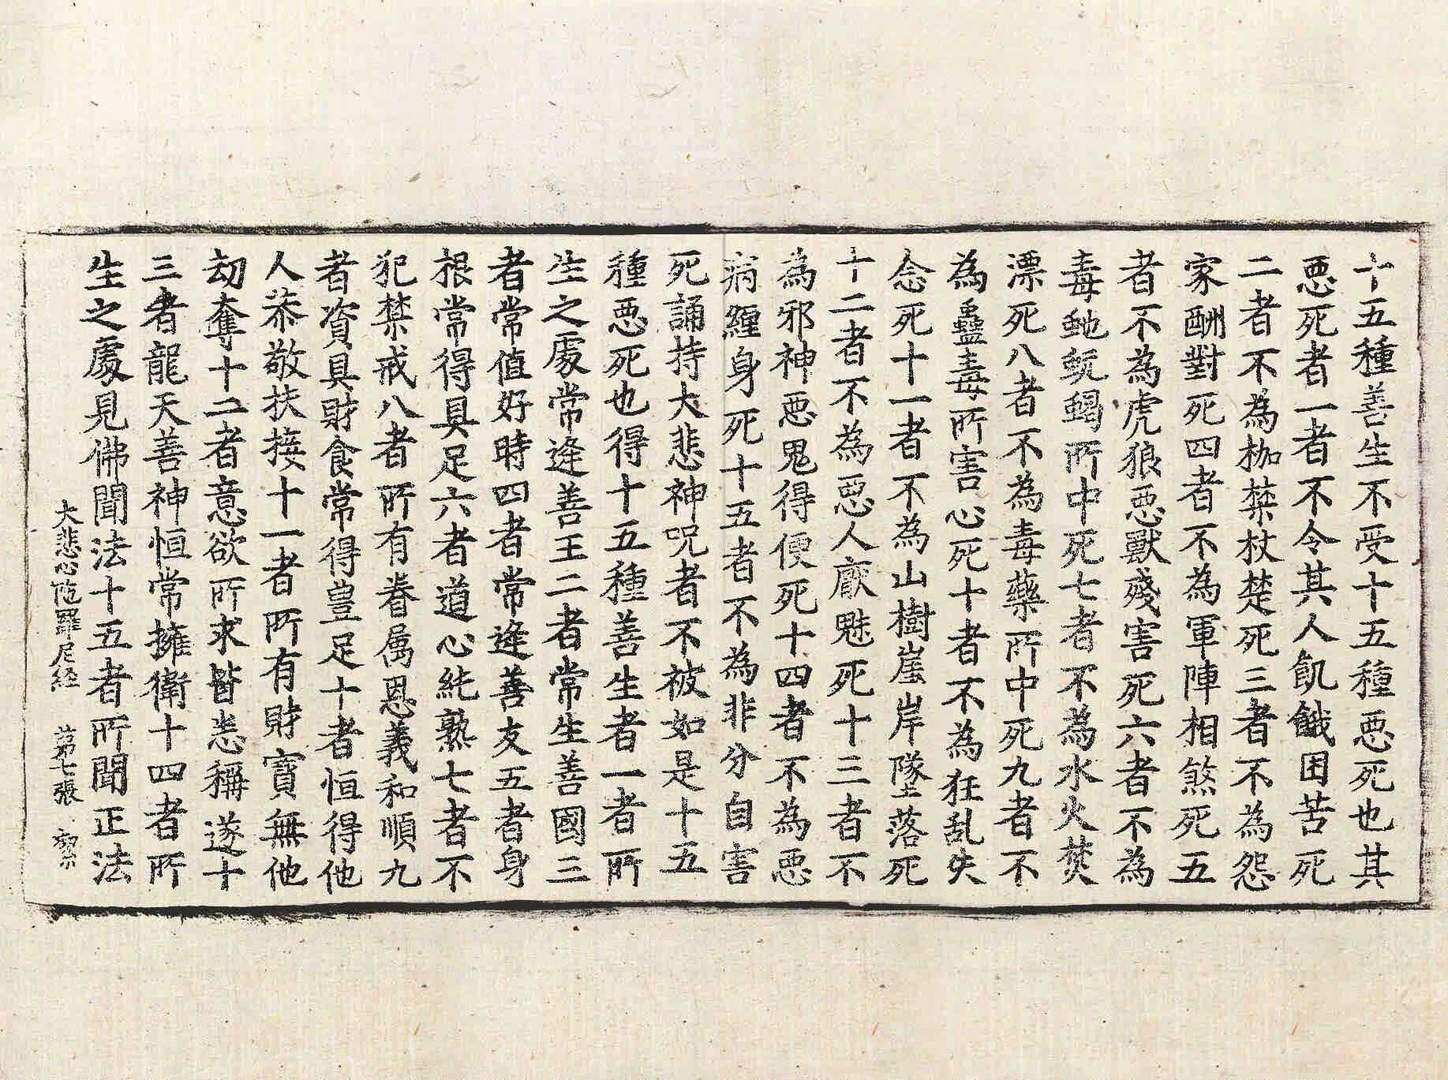 十五種善生不受十五種惡死也其
惡死者一者不令其人飢餓困苦死
二者不為枷禁杖楚死三者不為怨
家酬對死四者不為軍陣相煞死五
者不為虎狼惡獸殘害死六者不為
毒虵蚖蝎所中死七者不為水火焚
漂死八者不為毒藥所中死九者不
為蠱毒所害死十者不為狂乱失
念死十一者不為山樹崖岸墜落死
十二者不為惡人厭魅死十三者不
為邪神惡鬼得便死十四者不為惡
病纏身死十五者不為非分自害
死誦持大悲神呪者不被如是十五
種惡死也得十五種善生者一者所
生之處常逢善王二者常生善國三
者常值好時四者常逢善友五者身
根常得具足六者道心純熟七者不
犯禁戒八者所有眷属恩義和順九
者資具財食常得豊足十者恒得他
人恭敬扶接十一者所有財寶無他
刼奪十二者意欲所求皆悉稱遂十
三者龍天善神恒常擁衛十四者所
生之處見佛聞法十五者所聞正法
大悲心陁羅尼経 第七張